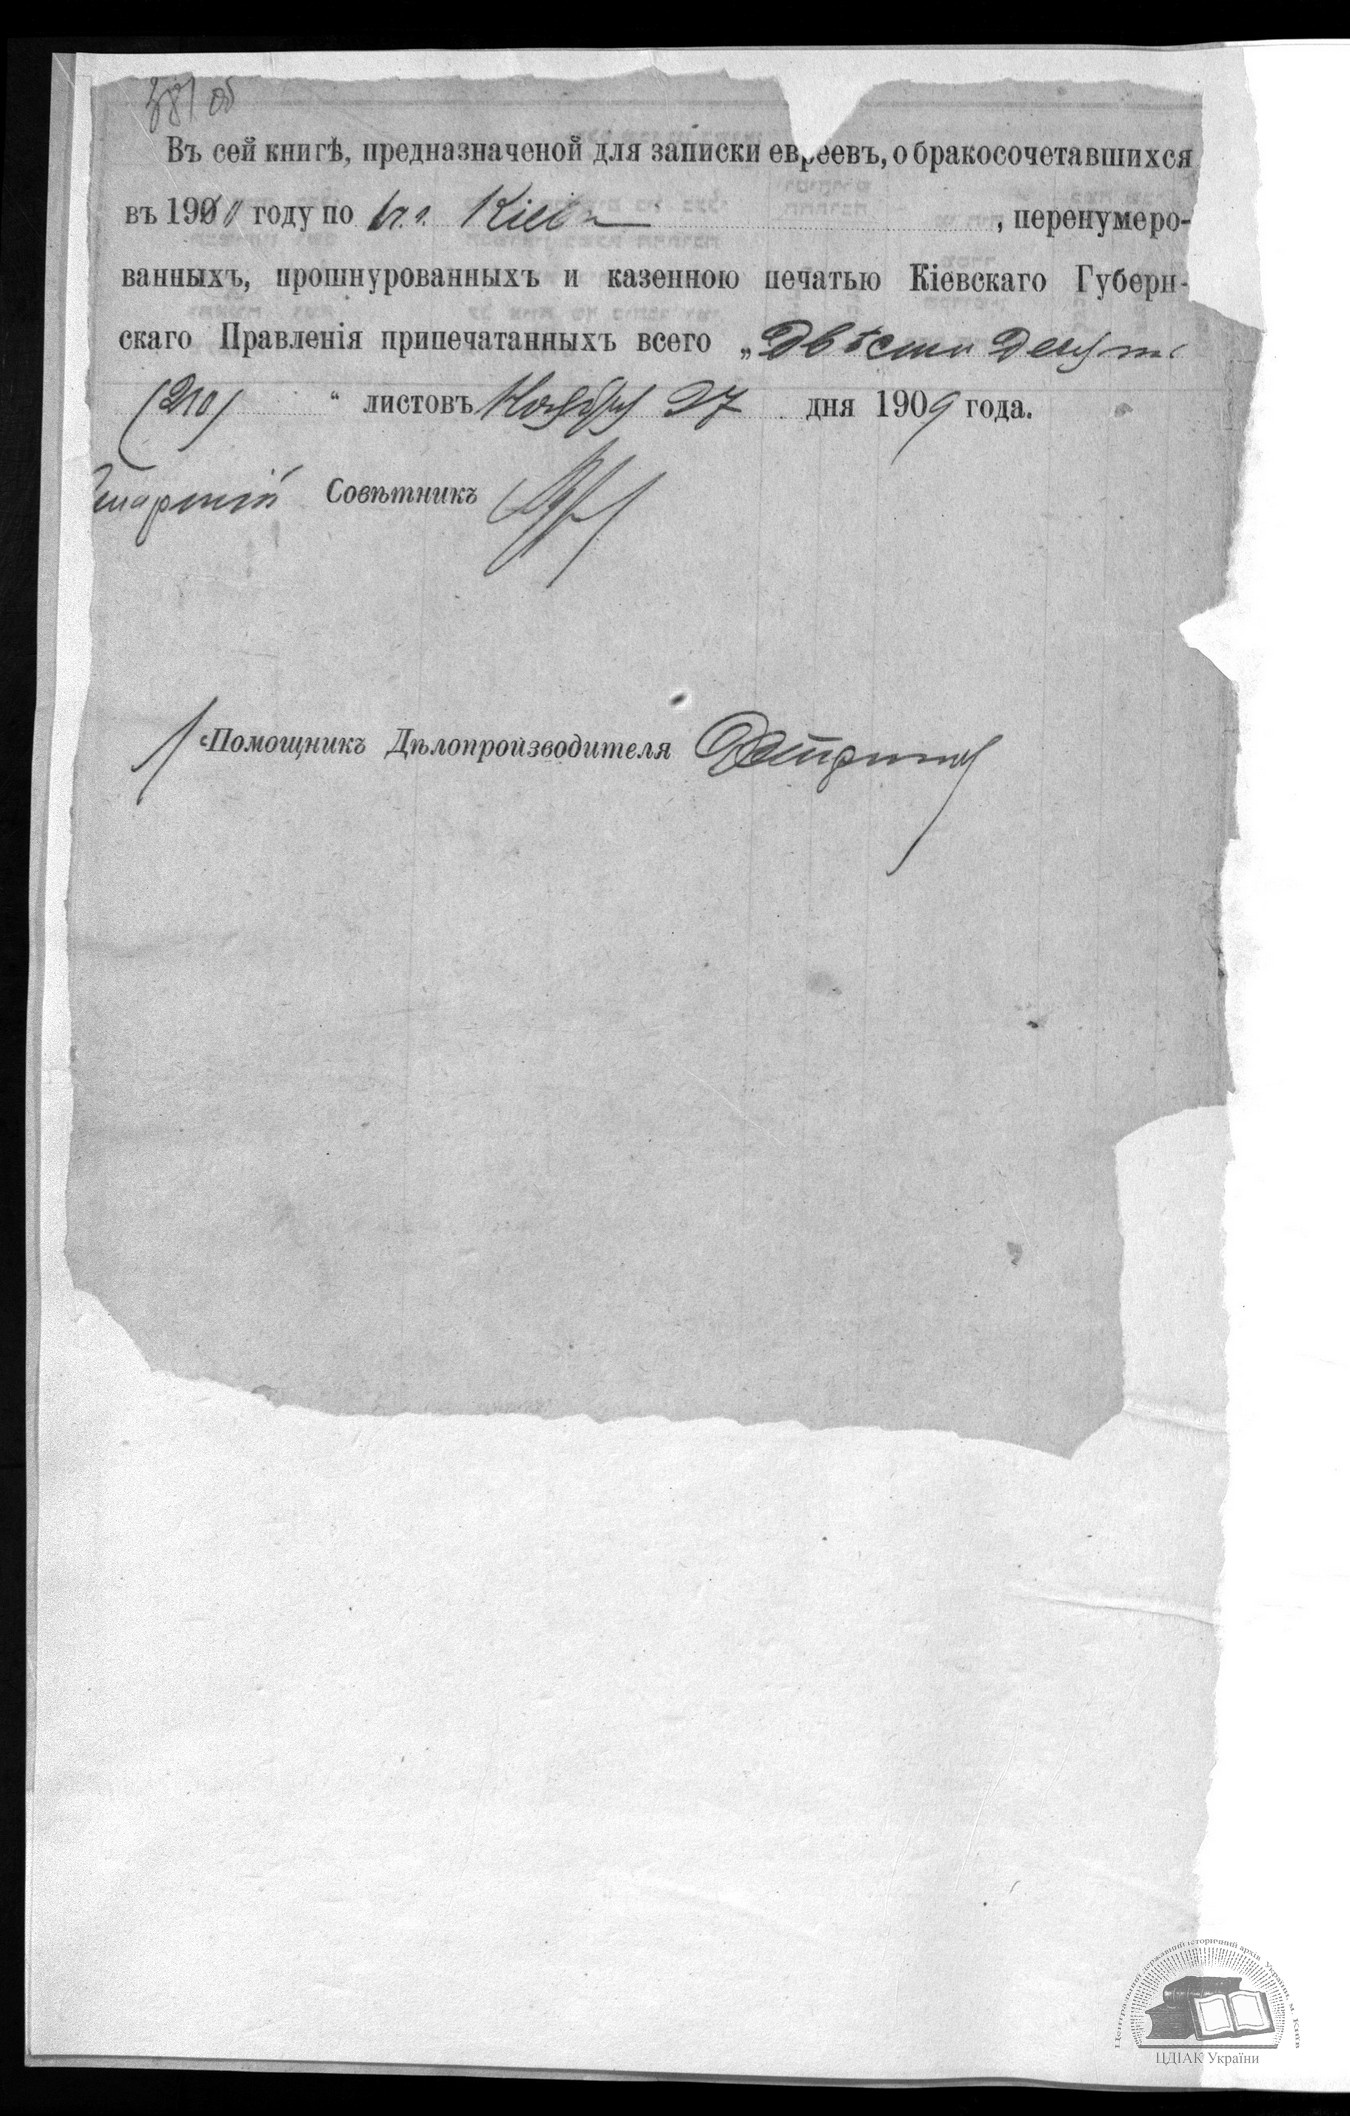 381 об
Въ сей книгѣ, предназначеной для записки евреевъ, о бракосочетавшихся
въ 1910 году по гор. Кіеву, перенумеро-
ванныхъ, прошнурованныхъ и казенною печатью Кіевскаго Губерн-
скаго Правленія припечатанныхъ всего „Двѣсти десять
(210) “ листовъ Ноября 27 дня 1909 года.
Совѣтникъ
Помощникъ Дѣлопроизводителя
Центральний державний історичний архів України, м. Київ
ЦДІАК України